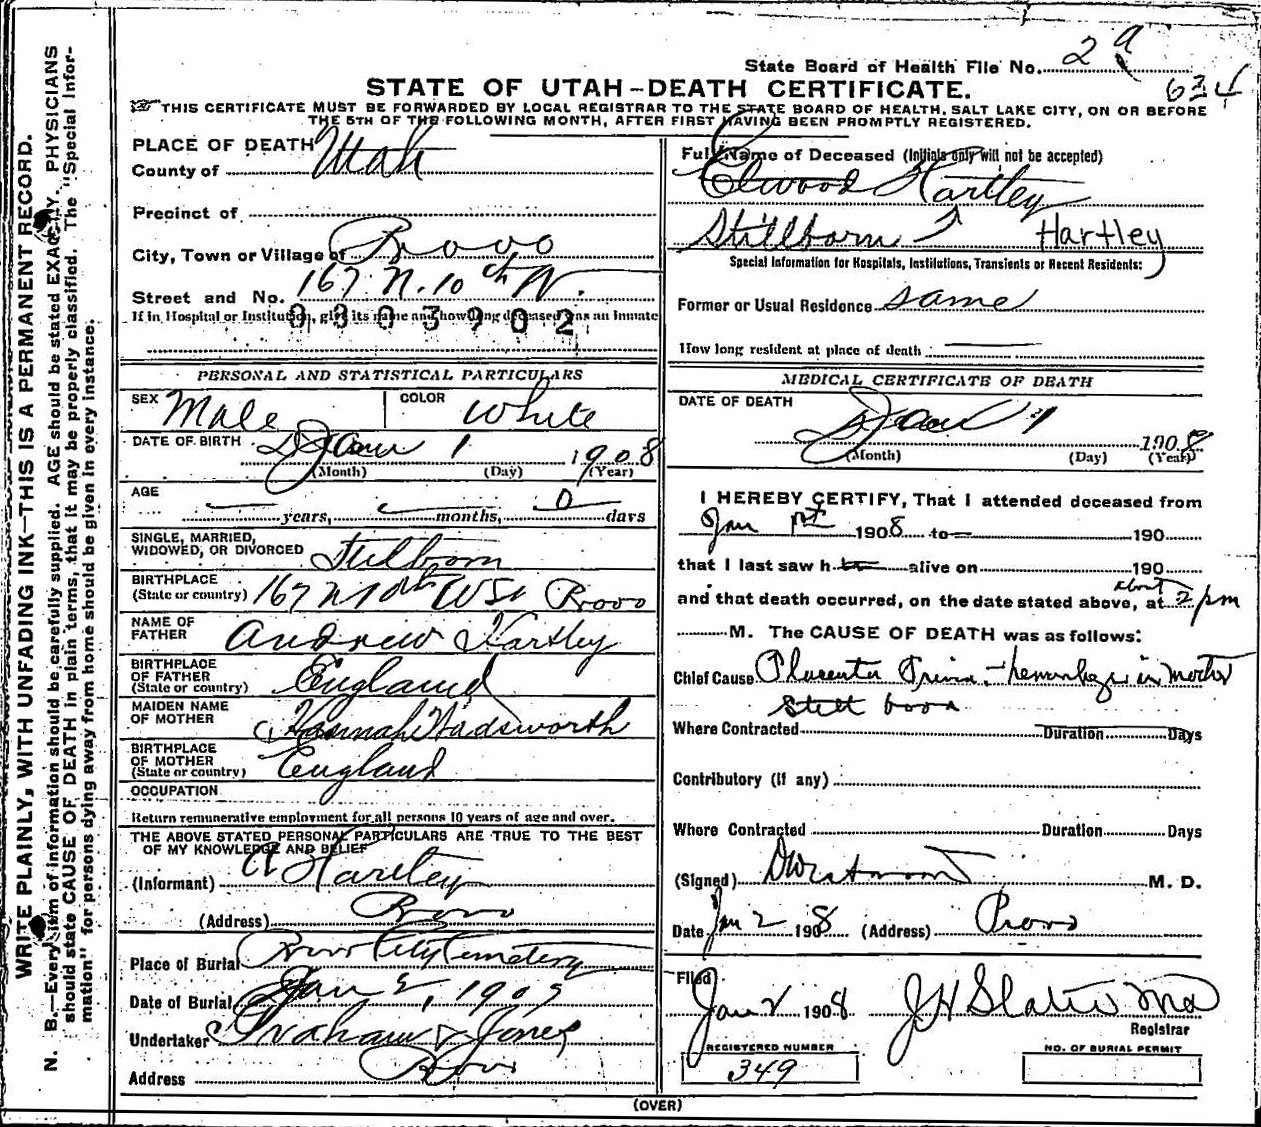 State Board of Health File No. 2 a
634
STATE OF UTAH-DEATH CERTIFICATE.
THIS CERTIFICATE MUST BE FORWARDED BY LOCAL REGISTRAR TO THE STATE BOARD OF HEALTH, SALT LAKE CITY, ON OR BEFORE
THE 5TH OF THE FOLLOWING MONTH, AFTER FIRST HAVING BEEN PROMPTLY REGISTERED.
WRITE PLAINLY, WITH UNFADING INK—THIS IS A PERMANENT RECORD.
N. B.—Every item of information should be carefully supplied. AGE should be stated EXACTLY. PHYSICIANS
should state CAUSE OF DEATH in plain terms, that it may be properly classified. The "Special Infor-
mation" for persons dying away from home should be given in every instance.
PLACE OF DEATH
County of Utah
Precinct of
City, Town or Village of Provo
Street and No. 167 N. 10th W.
If in Hospital or Institution, give its name and how long deceased was an inmate
0303902
PERSONAL AND STATISTICAL PARTICULARS
SEX Male COLOR White
DATE OF BIRTH Jan 1 1908
(Month) (Day) (Year)
AGE
years, months, 0 days
SINGLE, MARRIED,
WIDOWED, OR DIVORCED Stillborn
BIRTHPLACE
(State or country) 167 N 10th W St Provo
NAME OF
FATHER Andrew Hartley
BIRTHPLACE
OF FATHER
(State or country) England
MAIDEN NAME
OF MOTHER Hannah Wadsworth
BIRTHPLACE
OF MOTHER
(State or country) England
OCCUPATION
Return remunerative employment for all persons 10 years of age and over.
THE ABOVE STATED PERSONAL PARTICULARS ARE TRUE TO THE BEST
OF MY KNOWLEDGE AND BELIEF
(Informant) A Hartley
(Address) Provo
Place of Burial Provo City Cemetery
Date of Burial Jan 2, 1908
Undertaker Graham & Jones
Address Provo
Full Name of Deceased (Initials only will not be accepted)
Elwood Hartley
Stillborn Hartley
Special Information for Hospitals, Institutions, Transients or Recent Residents:
Former or Usual Residence same
How long resident at place of death
MEDICAL CERTIFICATE OF DEATH
DATE OF DEATH
Jan 1 1908
(Month) (Day) (Year)
I HEREBY CERTIFY, That I attended deceased from
Jan 1st 1908 to 190
that I last saw h alive on 190
and that death occurred, on the date stated above, at about 2 pm
M. The CAUSE OF DEATH was as follows:
Chief Cause Placenta Previa - hemorrhage in mother
Still born
Where Contracted Duration Days
Contributory (If any)
Where Contracted Duration Days
(Signed) M. D.
Date Jan 2 1908 (Address) Provo
Filed
Jan 2 1908 J H Slater MD
Registrar
REGISTERED NUMBER
349
NO. OF BURIAL PERMIT
(OVER)